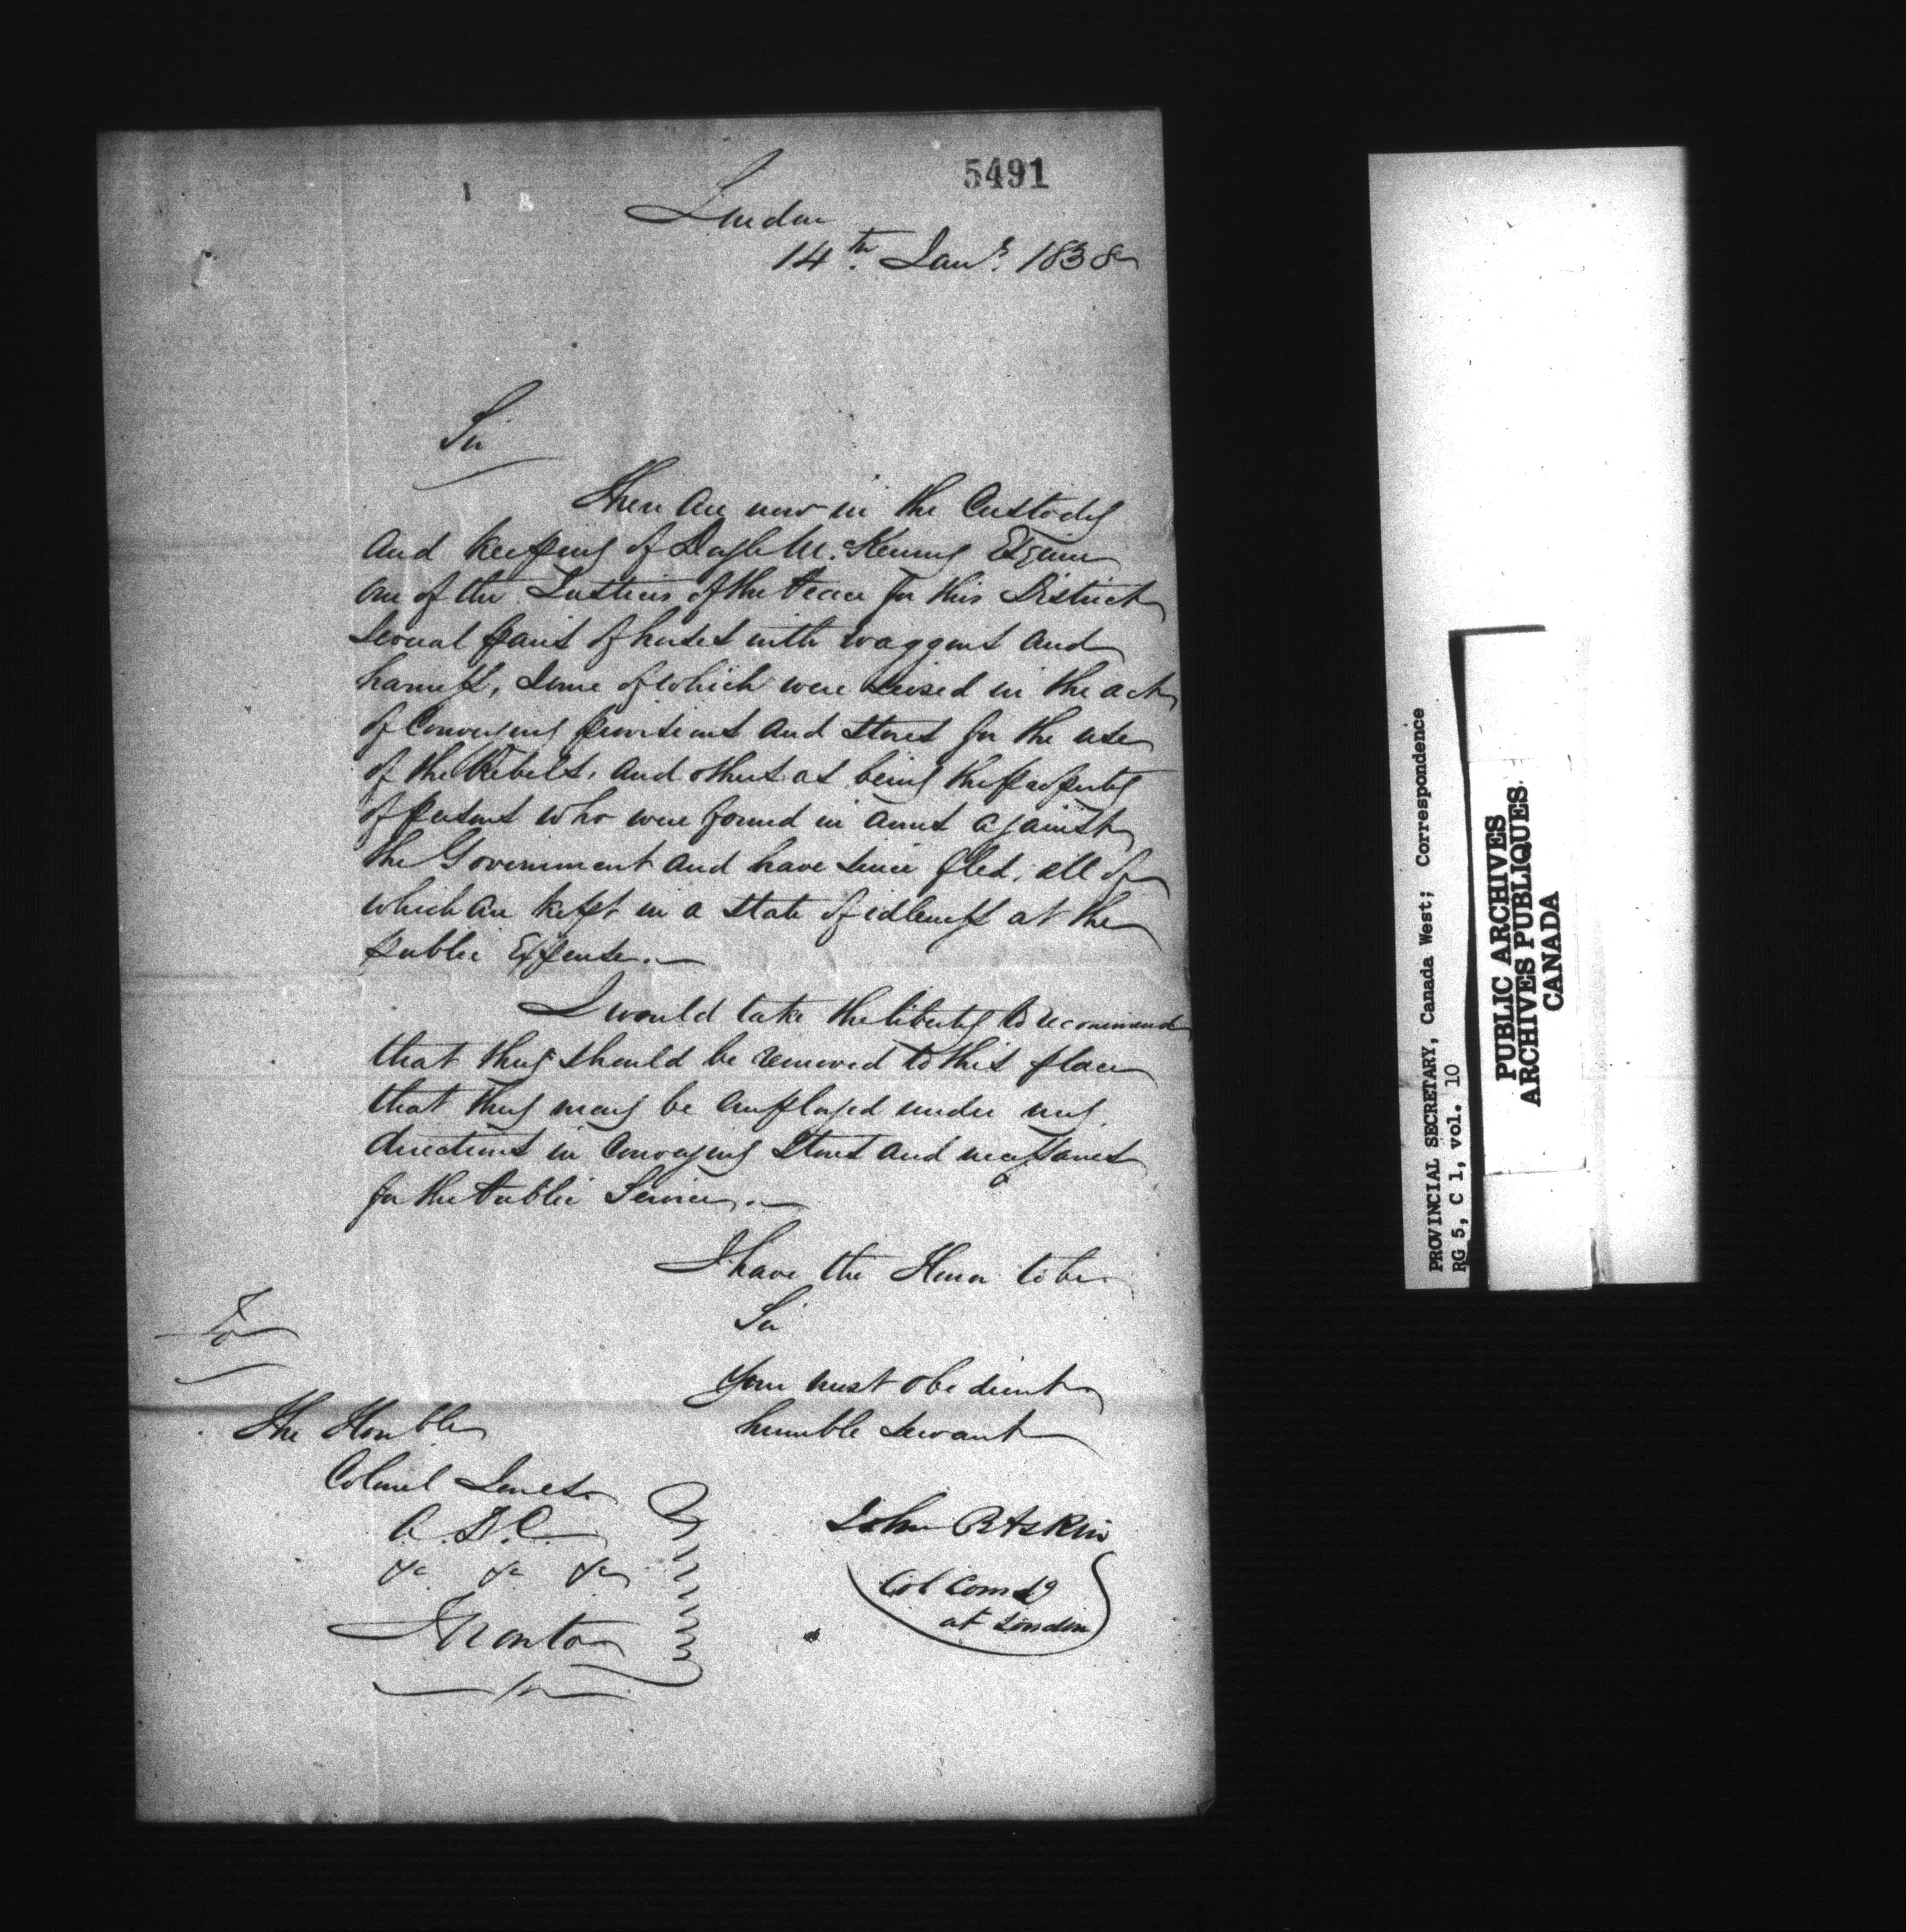 5491
London
14th Jany. 1838
Sir
There are now in the Custody
and keeping of Doyle McKenny Esquire
one of the Justices of the Peace for this District
several pairs of horses with waggons and
harness, some of which were seised in the act
of Conveying provisions and stores for the use
of the Rebels, and others as being the property
of persons who were found in arms against
the Government and have since fled, all of
which are kept in a state of idleness at the
public Expense.
I would take the liberty to recommend
that they should be removed to this place
that they may be employed under my
directions in conveying stores and
for the Public Service.
I have the Honor to be
Sir
Your most obedient
humble servant
John B Askin
Col Comdg
at London
To
The Honble
Colonel Jones
A.D.C.
&c &c &c
Toronto
PROVINCIAL SECRETARY, Canada West; Correspondence
RG 5, C 1, vol. 10
PUBLIC ARCHIVES
ARCHIVES PUBLIQUES
CANADA